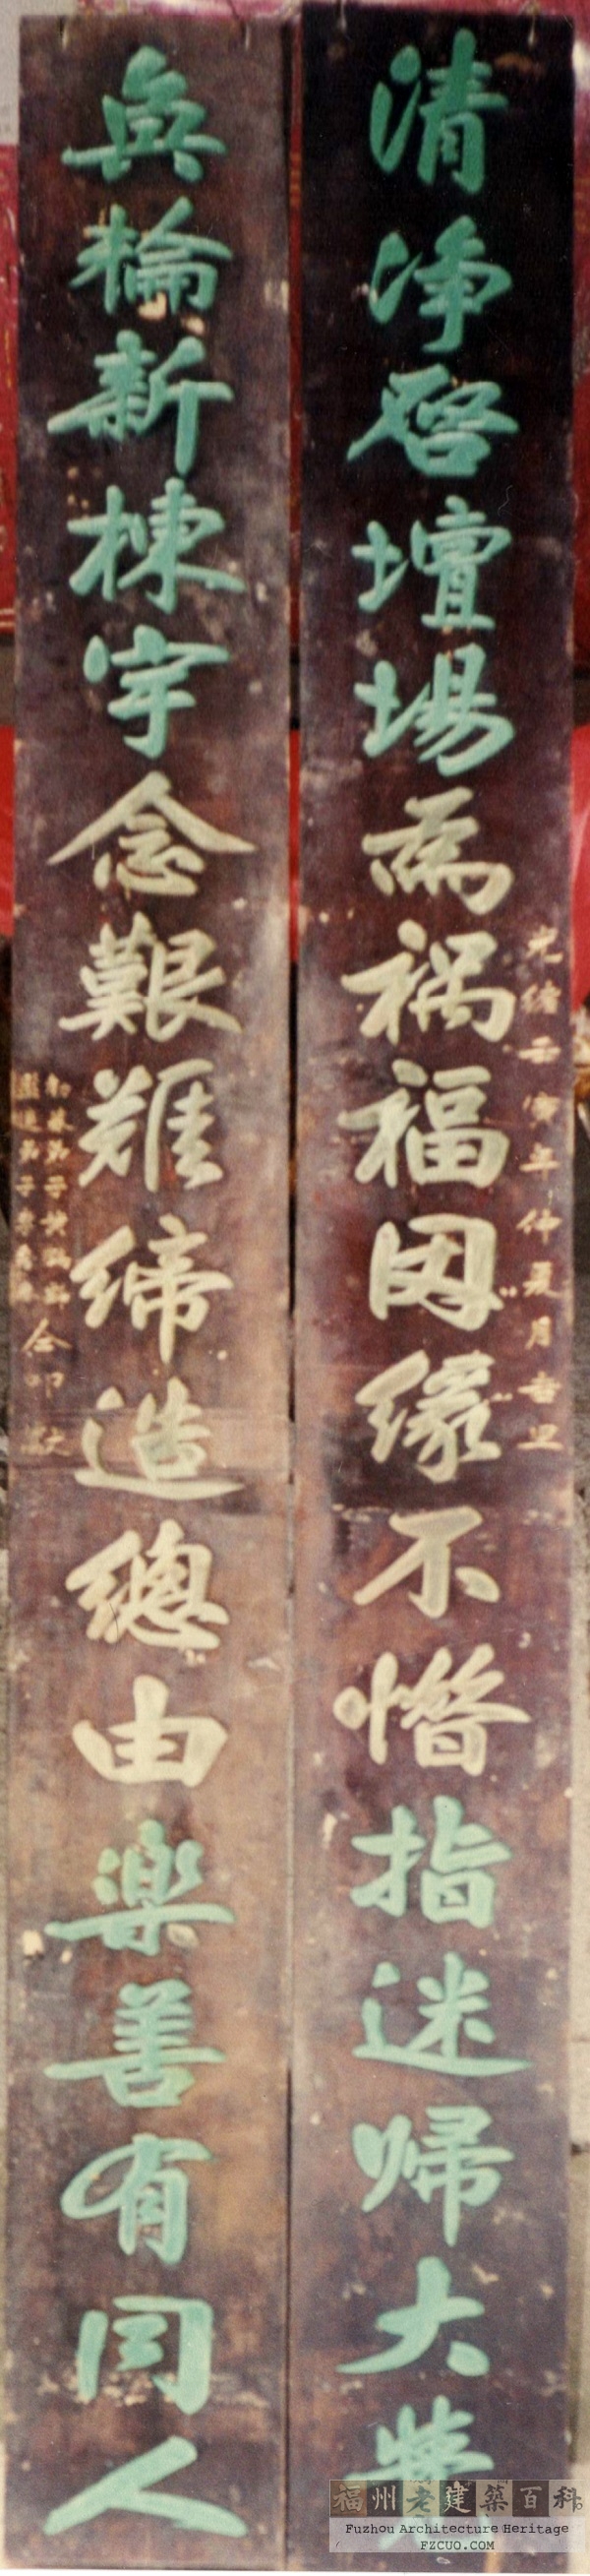 清淨啓壇場為禍福因緣不惜指迷歸大
光緒壬寅年仲夏月吉旦
奐輪新棟宇念艱難締造總由樂善有同人
弟子
弟子
仝叩
福州老建築百科
Fuzhou Architecture Heritage
FZCUO.COM